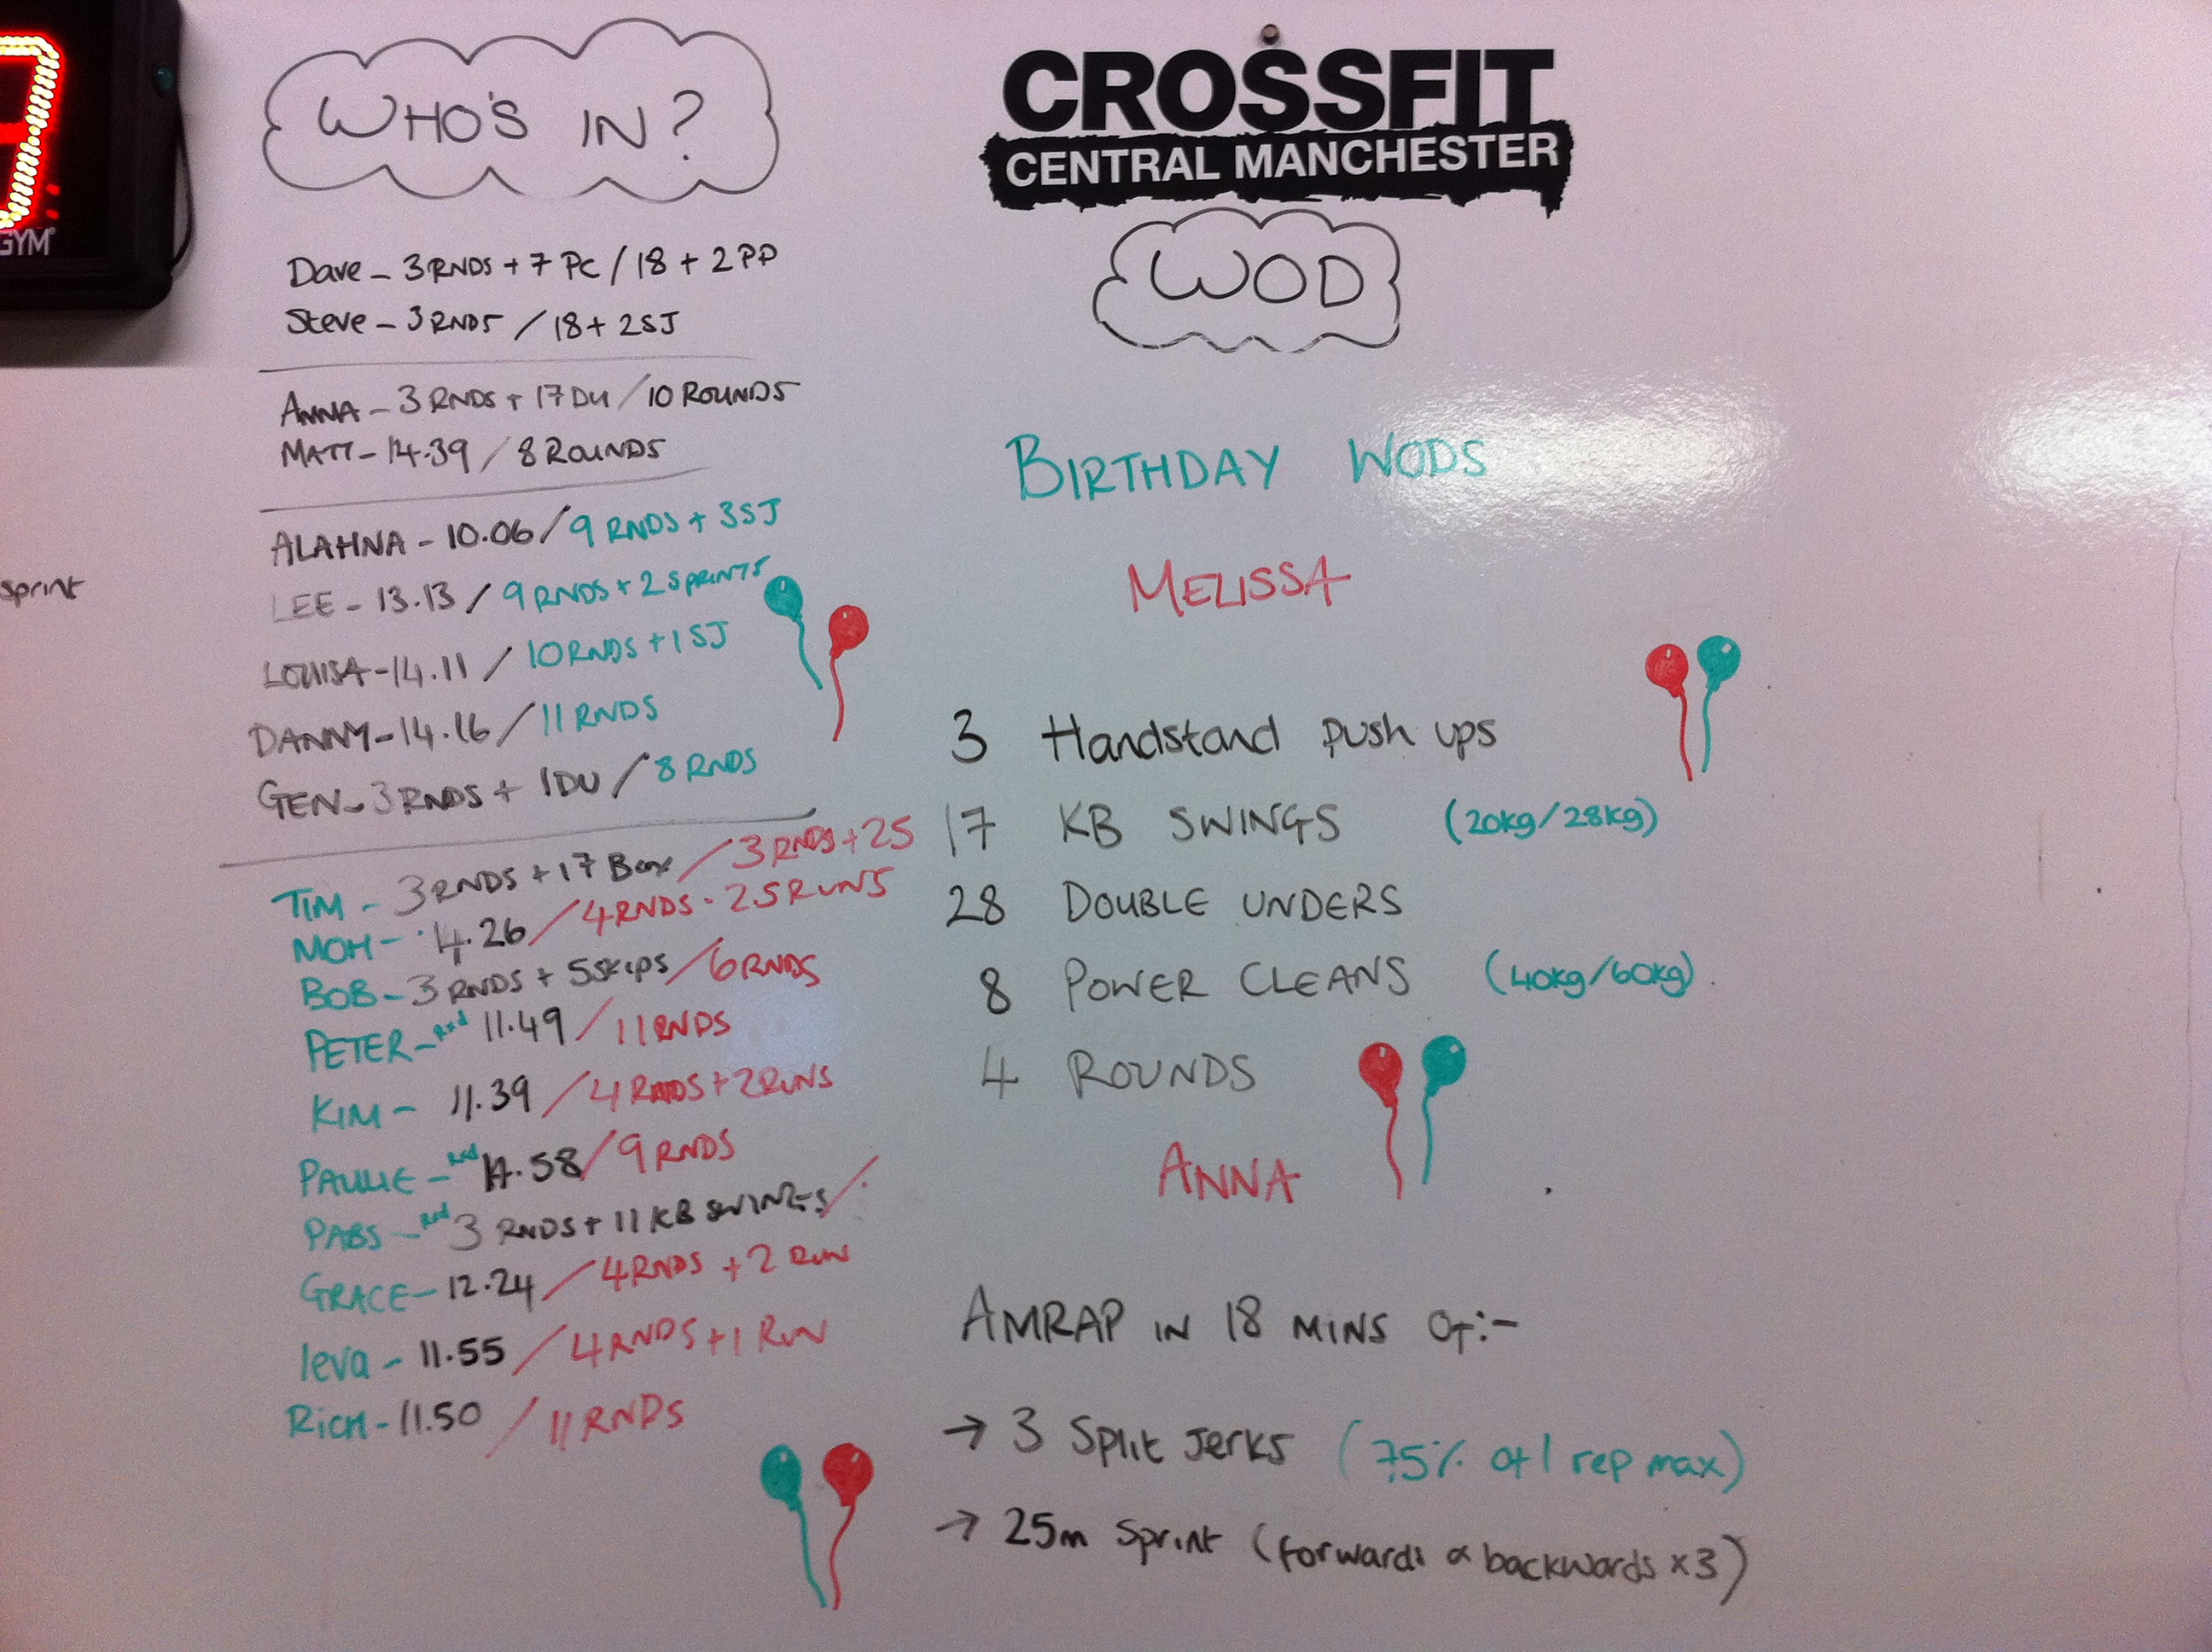 GYM
sprint
WHO'S IN?
Dave - 3 RNDS + 7 PC / 18 + 2 PP
Steve - 3 RNDS / 18 + 2 SJ
ANNA - 3 RNDS + 17 DU / 10 ROUNDS
MATT - 14.39 / 8 ROUNDS
ALAHNA - 10.06 / 9 RNDS + 3 SJ
LEE - 13.13 / 9 RNDS + 2 SPRINTS
LOUISA - 14.11 / 10 RNDS + 1 SJ
DANNY - 14.16 / 11 RNDS
GEN - 3 RNDS + 1 DU / 8 RNDS
TIM - 3 RNDS + 17 Box / 3 RNDS + 25
MOH - 14.26 / 4 RNDS - 25 RUNS
BOB - 3 RNDS + 5 skips / 6 RNDS
PETER - Rxd 11.49 / 11 RNDS
KIM - 11.39 / 4 RNDS + 2 RUNS
PAULIE - Rxd .58 / 9 RNDS
PABS - Rxd 3 RNDS + 11 KB SWINGS /
GRACE - 12.24 / 4 RNDS + 2 RUN
Ieva - 11.55 / 4 RNDS + 1 RUN
RicH - 11.50 / 11 RNDS
CROSSFIT
CENTRAL MANCHESTER
WOD
BIRTHDAY WODS
MELISSA
3 Handstand push ups
17 KB SWINGS (20kg/28kg)
28 DOUBLE UNDERS
8 POWER CLEANS (40kg/60kg)
4 ROUNDS
ANNA
AMRAP IN 18 MINS OF:-
→ 3 Split Jerks (75% of 1 rep max)
→ 25m Sprint (forwards & backwards x3)